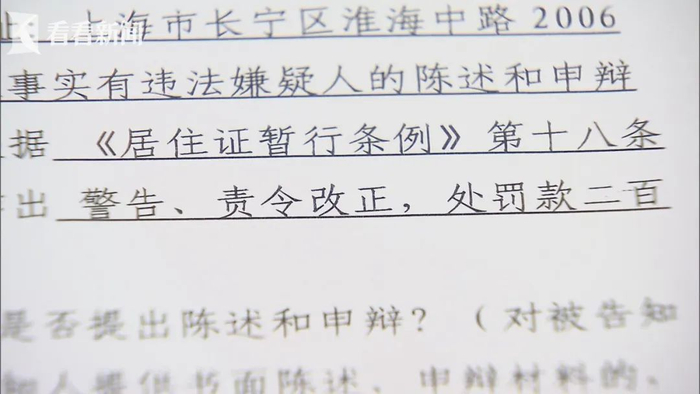 看看新闻
上海市长宁区淮海中路 2006
事实有违法嫌疑人的陈述和申辩
据 《居住证暂行条例》第十八条
出 警告、责令改正，处罚款二百
是否提出陈述和申辩？（对被告知
人提供书面陈述、申辩材料的，